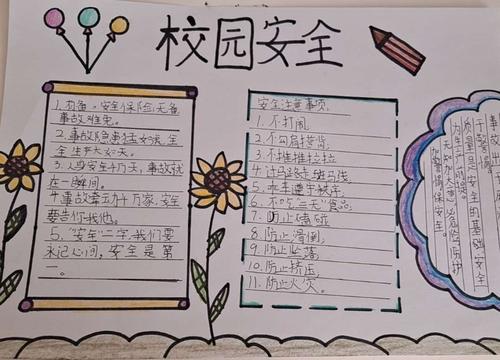 校园安全
1.有备,安全保险;无备
事故难免。
2.事故隐患猛如虎,星
全生产大如天。
3.人身安全千万天,事故就
在一瞬间。
4.事故牵动千万家,安全
要靠你我他。
5."安全"二字,我们要
永记心间,安全是第
一。
安全注意事项:
1.不打闹
2.不勾肩搭背;
3.不推推拉拉
4.过马路走斑马线
5.乘车遵守秩序
6.不吃"三无"食品;
7.防止磕碰
8.防止滑倒;
9.防止坠落
10.防止挤压
11.防止火灾。
质量是安全的基础,安全
为生产